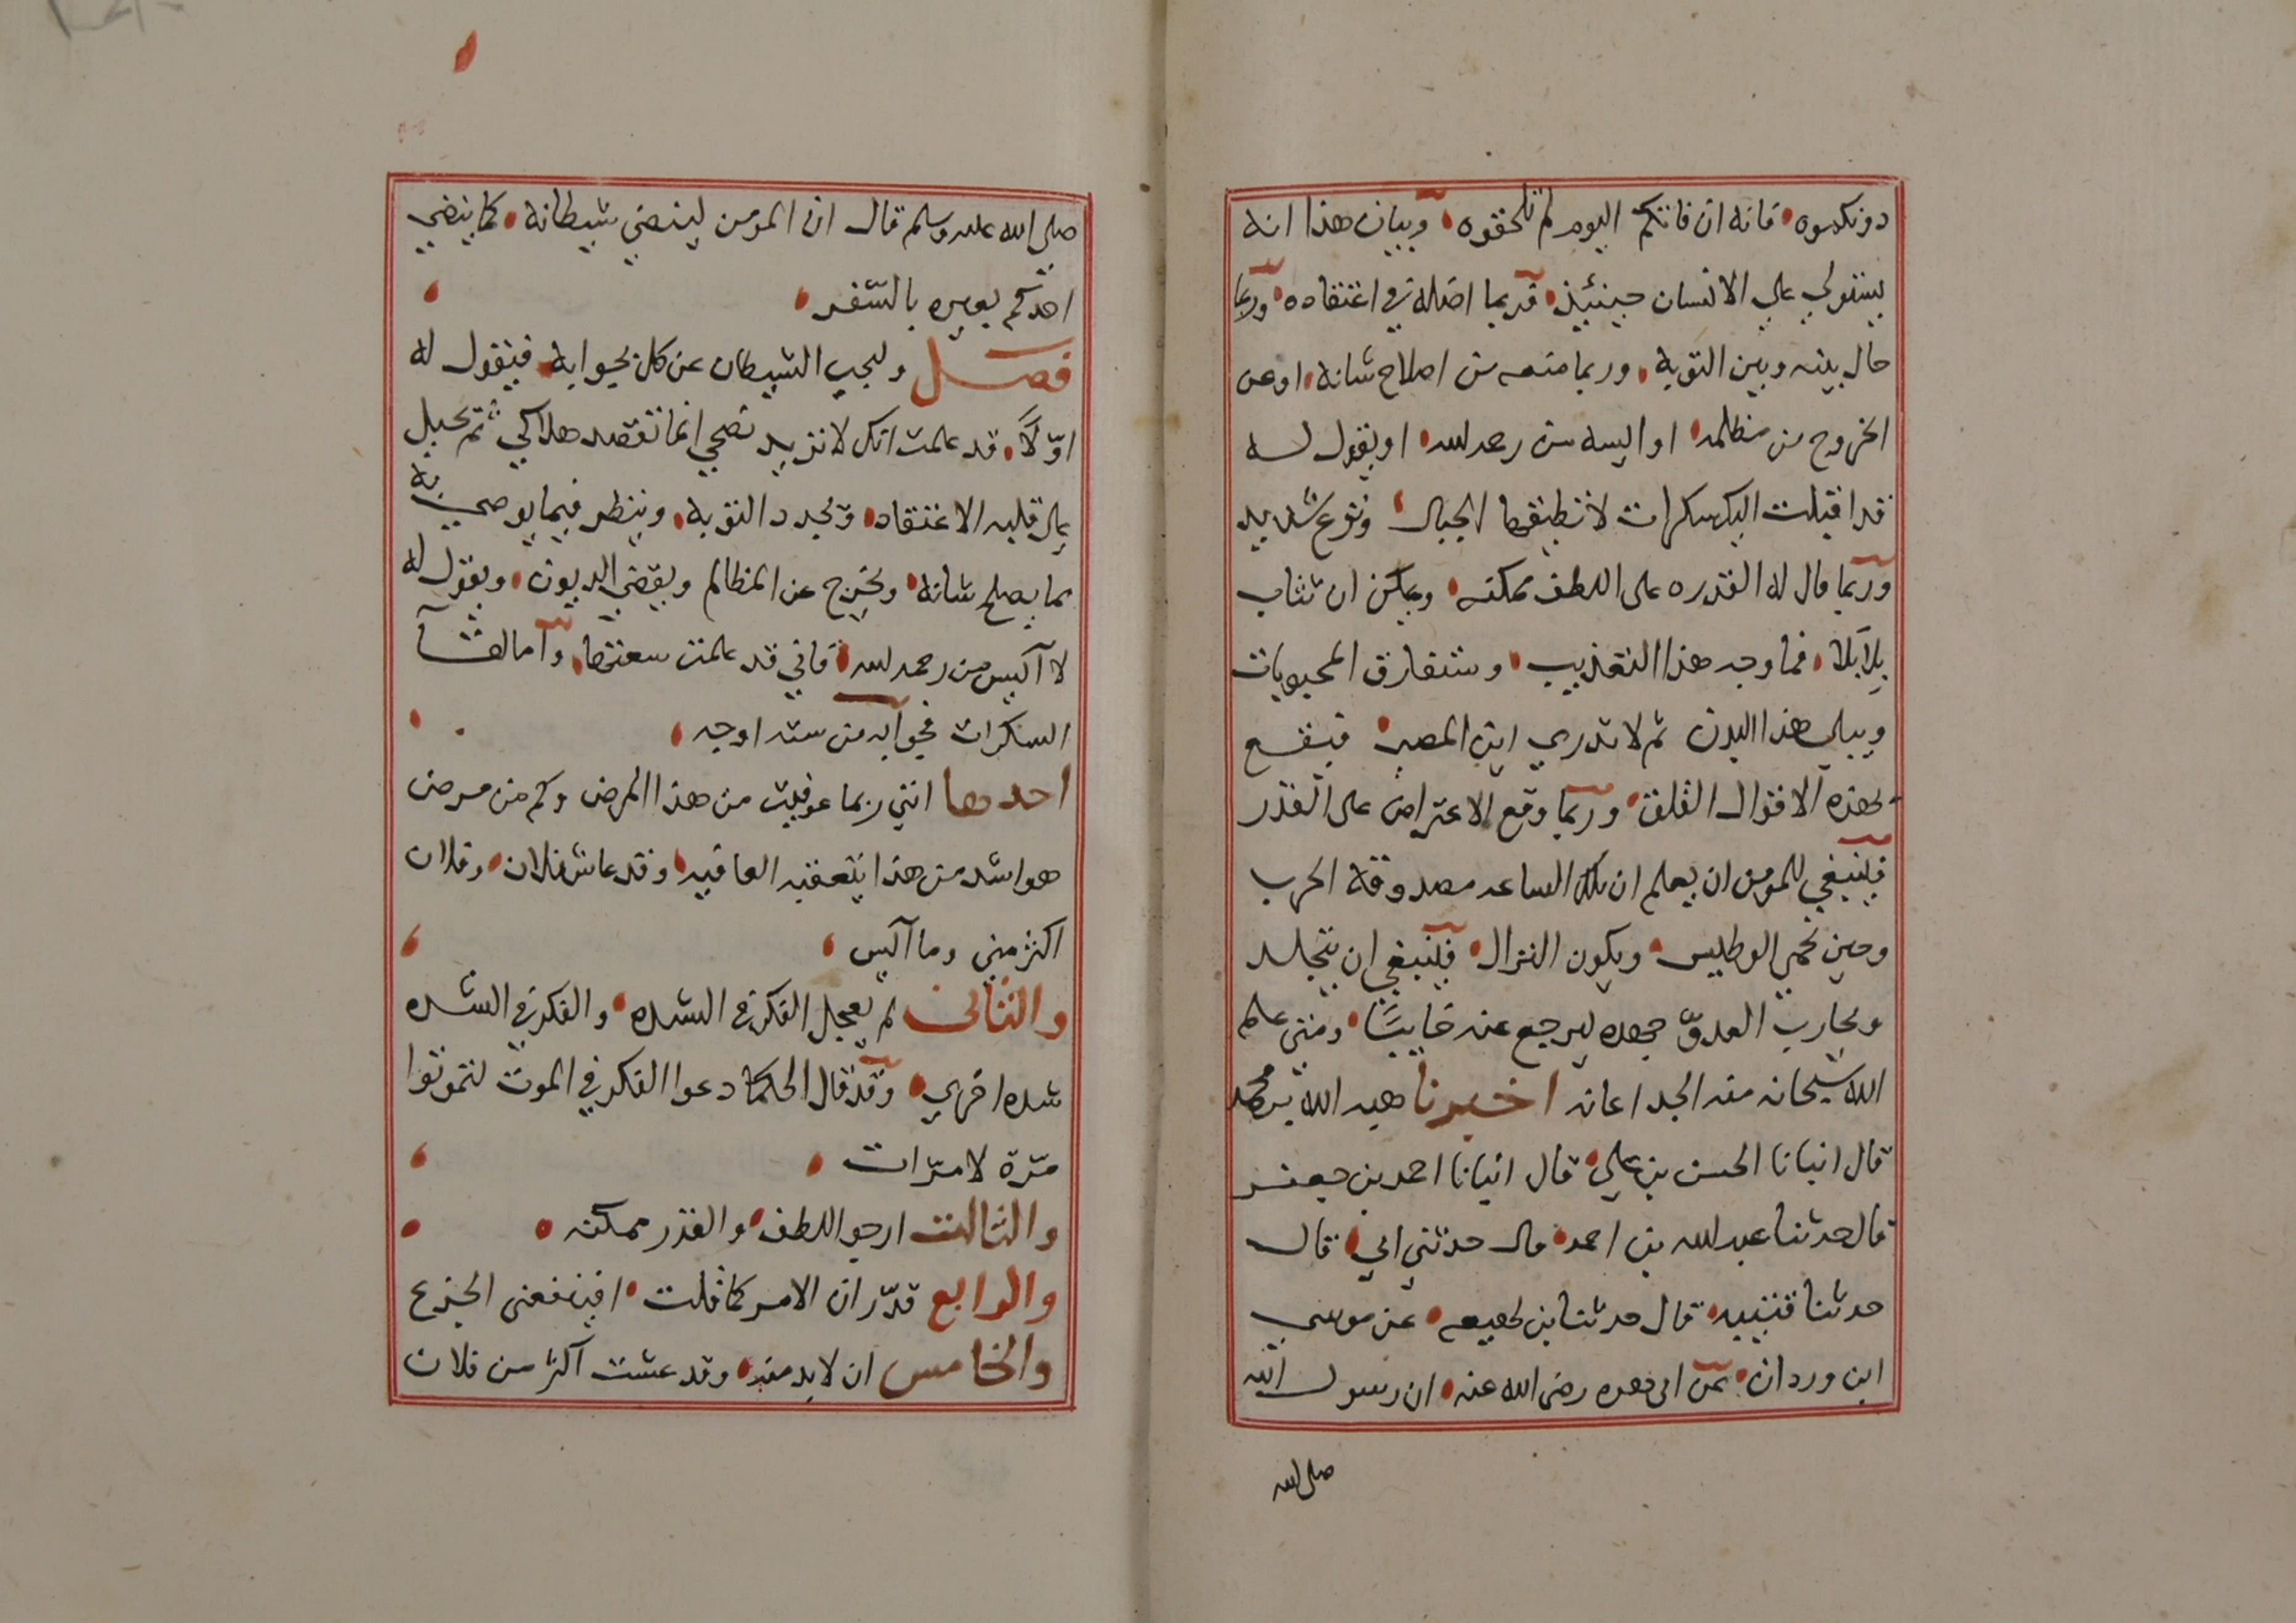 دونكموه فانه ان فاتكم اليوم لم تلحقوه وبيان هذا انه
يستولي على الانسان حينئيذ فربما اضله في اعتقاده وربما
حال بينه وبين التوبة وربما منعه من اصلاح شانه او عن
الخروج من مظلمه او اليسه من رحمه الله او يقول له
قد اقبلت اليك سكرات لا تطيقها الجبال ونزع شديد
وربما قال له القدره على اللطف ممكنه ويمكن ان تثاب
بلا بلا فما وجه هذا التعذيب وستفارق المحبوبات
ويبلى هذا البدن ثم لا تدري اين المصير فيقع
بهذه الاقوال القلق وربما وقع الاعتراض على القدر
فلينبغي للمومن ان يعلم ان تلك الساعه مصدوقة الحرب
وحين تحمي الوطيس ويكون النزال فلينبغي ان يتجلد
ويحارب العدوّ جهده ليرجع عنه خايبًا ومتى علم
الله سبحانه منه الجد اعانه اخبرنا هبه الله بن محمد
قال انبانا الحسن بن علي قال انبانا احمد بن جعفر
قال حدثنا عبد الله بن احمد قال حدثني ابي قال
حدثنا قتيبه قال حدثنا بن لهيعه عن موسى
ابن وردان عن ابي هريره رضى الله عنه ان رسول الله
صلى الله
صلى الله عليه وسلم قال ان المومن لينضي شيطانه كما ينضي
احدكم بعيره بالسّفر
فصل وليجب الشيطان عن كل بجوابه فيقول له
اوّلاً قد علمت انك لا تزيد نصحي انما تقصد هلاكي ثم تحيل
على قلبه الاعتقاد ويجدد التوبه وينظر فيما يوصي به
بما يصلح شانه ويخرج عن المظالم ويقضي الديون ويقول له
لا آكيس من رحمه الله فاني قد علمت سعتها واما لقا
السكرات فجوابه من سته اوجه
احدها انني ربما عوفيت من هذا المرض وكم من مرض
هو اشد من هذا يتعقبه العافيه وقد عاش فلان وفلان
اكثر مني وما آكيس
والثاني لم يعجل الفكر في الشده والفكر في الشده
شده اخري وقد قال الحكما دعوا الفكر في الموت لتموتوا
مرّة لا مرّات
والثالث ارجوا اللطف والقدر ممكنه
والرابع قدّر ان الامر كما قلت افينفعنى الجزع
والخامس ان لا بد منه وقد عشت اكثر من فلان